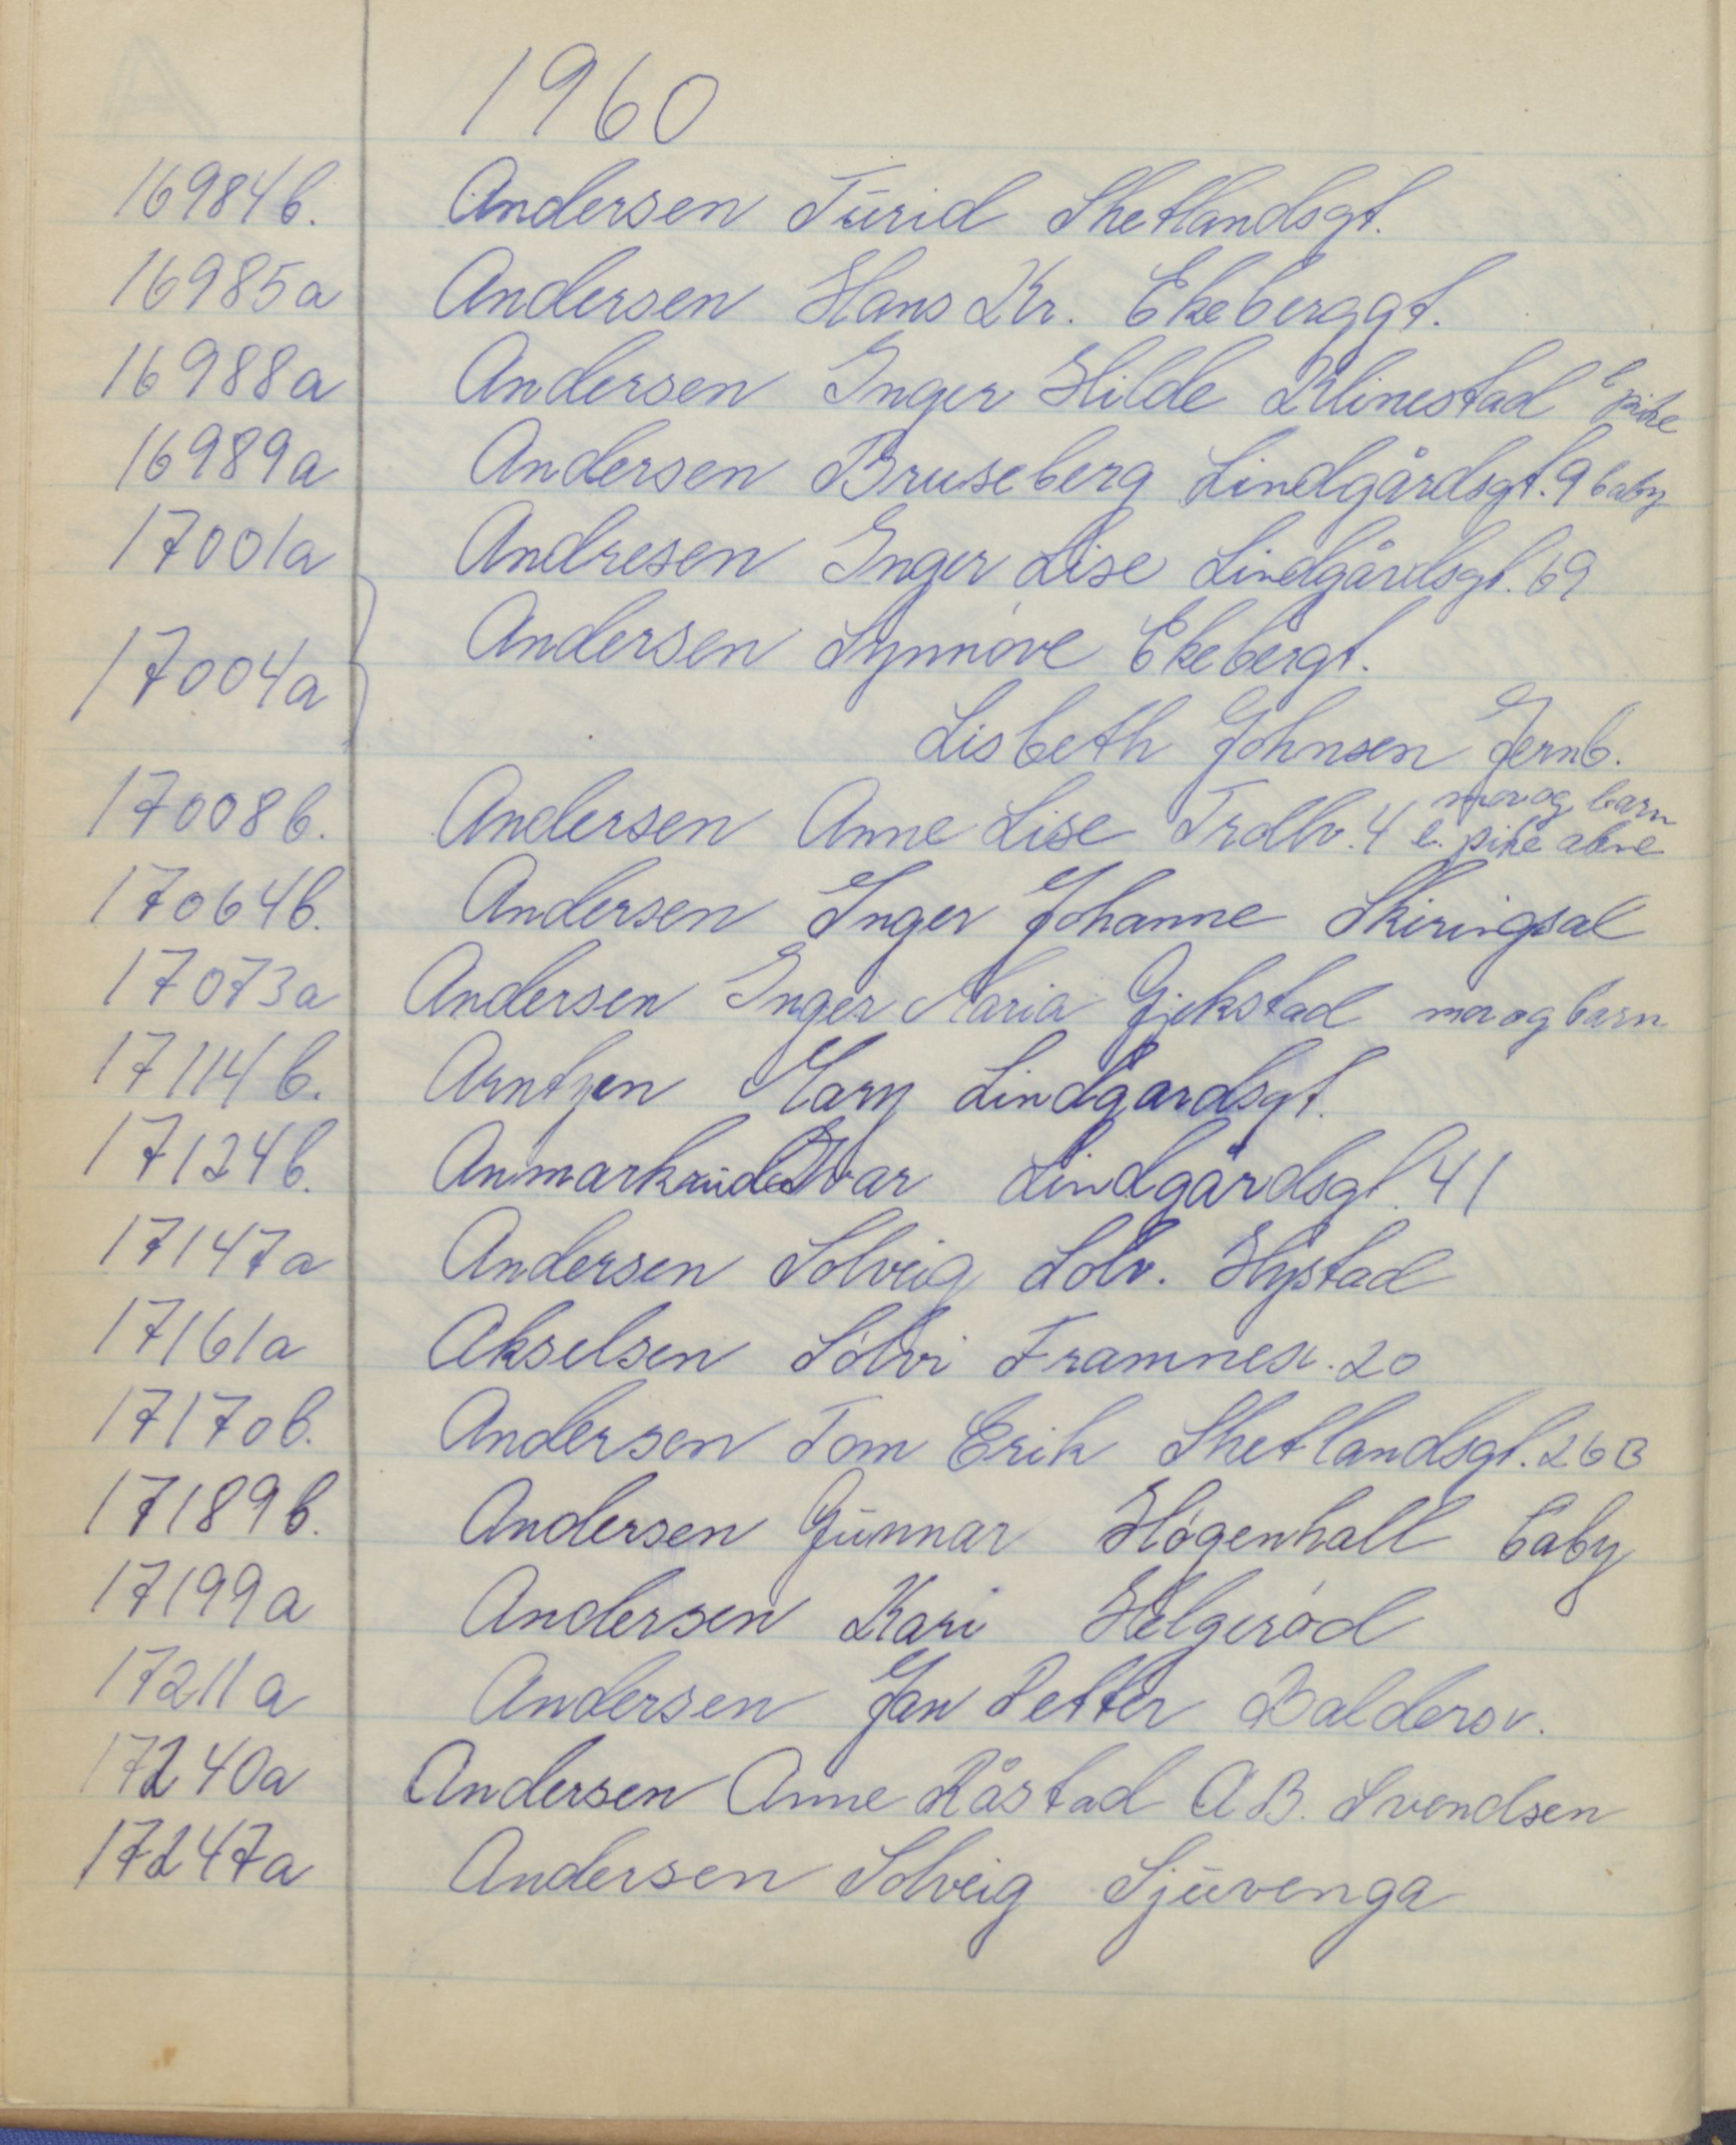 1960
16984b. Andersen Turid Shetlandsgt.
16985a Andersen Hans Kr. Ekeberggt.
16988a Andersen Inger Hilde Klinestad l. pike
16989a Andersen Bruseberg Lindgårdsgt. 9 baby
17001a Andresen Inger Lise Lindgårdsgt. 69
17004a Andersen Synnøve Ekebergt.
Lisbeth Johnsen Jernb.
mor og barn
17008b. Andersen Anne Lise Trollv. 4 l. pike alene
17064b. Andersen Inger Johanne Skiringsal
17073a Andersen Inger Maria Gjekstad mor og barn
17114b. Arntzen Mary Lindgardsgt.
17124b. Anmarkrud Ivar Lindgårdsgt. 41
17147a Andersen Solveig Solv. Hystad
17161a Akselsen Sølvi Framnesv. 20
17170b. Andersen Tom Erik Shetlandsgt. 26B
17189b. Andersen Gunnar Høgenhall baby
17199a Andersen Kari Helgerød
17211a Andersen Jan Petter Baldersv.
17240a Andersen Anne Råstad A.B. Svendsen
17247a Andersen Solveig Sjuvenga